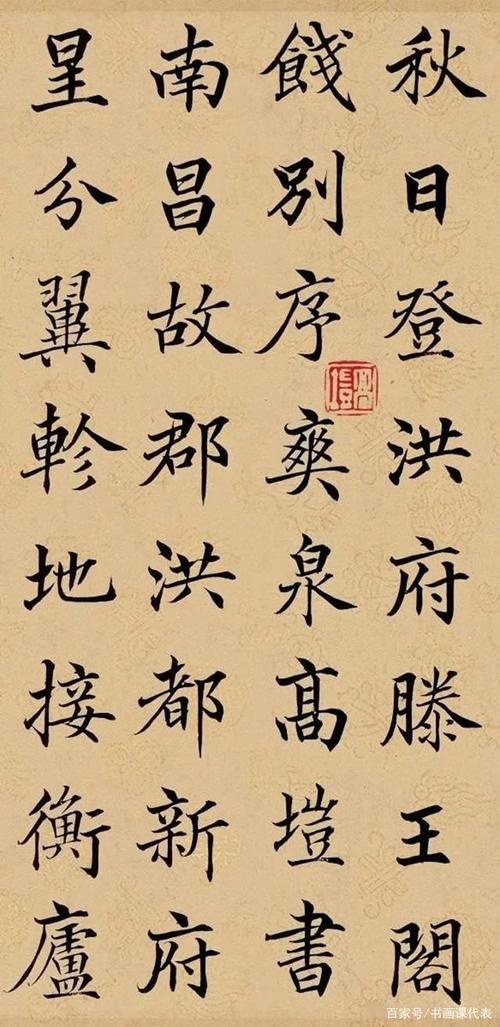 秋日登洪府滕王閣
餞別序爽泉高塏書
南昌故郡洪都新府
星分翼軫地接衡廬
百家号/书画课代表